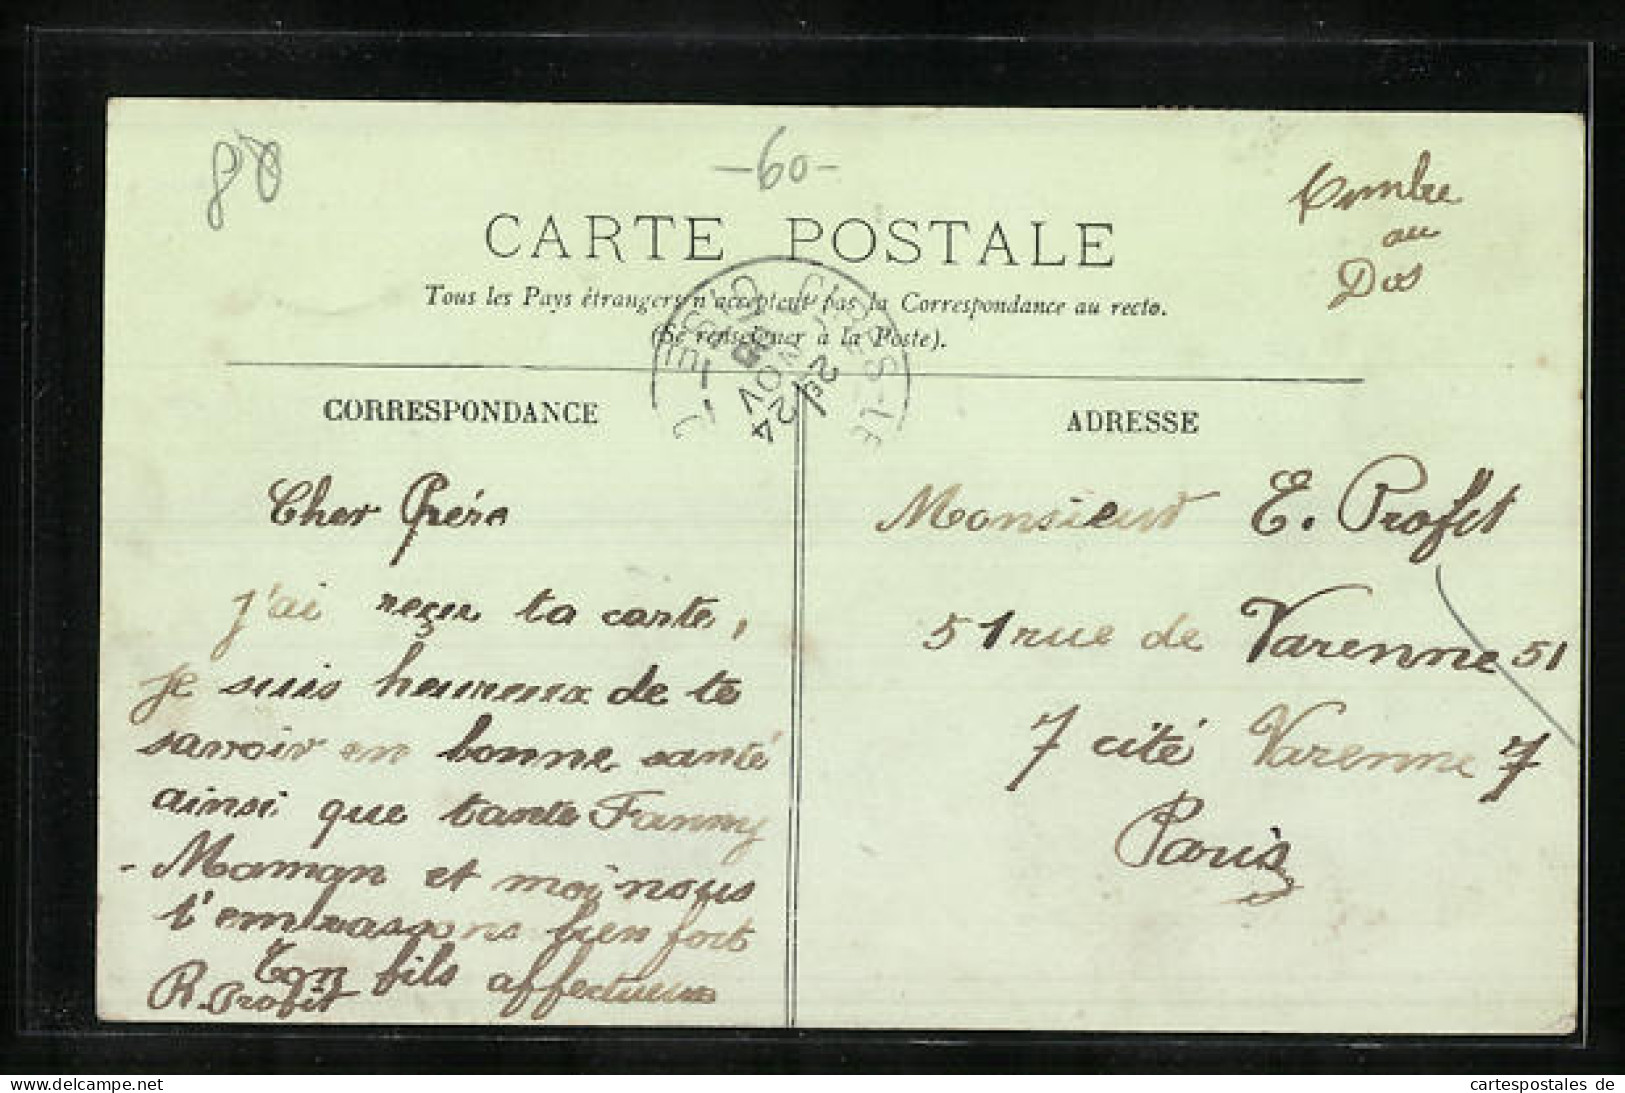 80
-60-
Timbre
au
Dos
CARTE POSTALE
Tous les Pays étrangers n'acceptent pas la Correspondance au recto.
(Se renseigner à la Poste).
CORRESPONDANCE
ADRESSE
24
NOV
Cher Père
j'ai reçu ta carte,
je suis heureux de te
savoir en bonne santé
ainsi que tante Fanny
- Maman et moi nous
t'embrassons bien fort
Ton fils affectueux
R. Profit
Monsieur E. Profit
51 rue de Varenne 51
7 cité Varenne 7
Paris
www.delcampe.net
cartespostales de